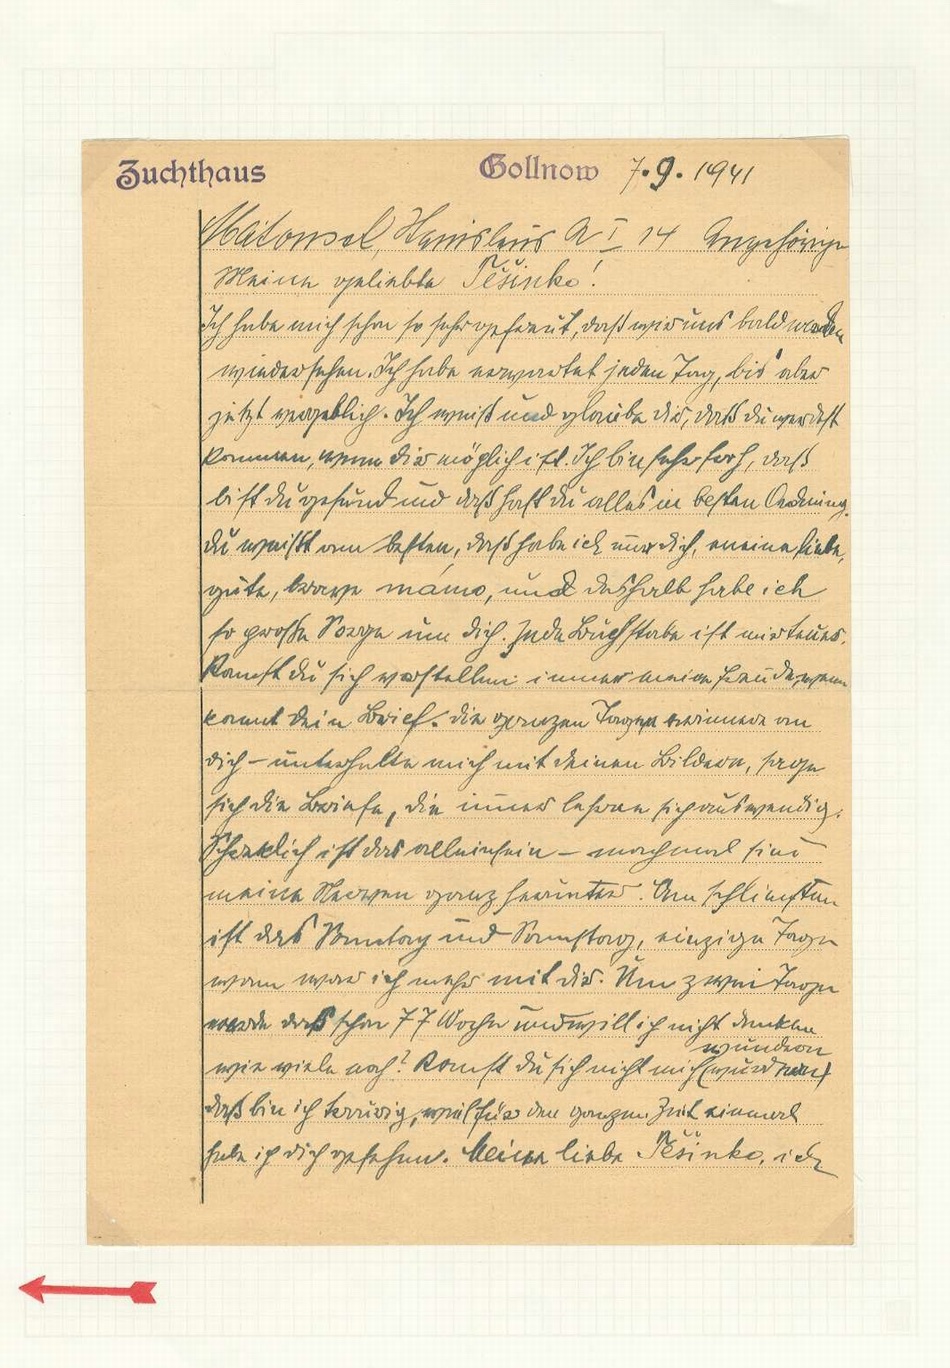 Zuchthaus Gollnow 7.9.1941
A I 14 Angehörige
Meine geliebte Těšinko!
Ich habe mich schon so sehr gefreut, daß wir uns bald werden
wiedersehen. Ich habe erwartet jeden Tag, bis aber
jetzt vergeblich. Ich weiß und glaube dir, daß du werdest
kommen, wenn dir möglich ist. Ich bin sehr froh, daß
bist du gesund und daß hast du alles in besten Ordnung.
Du weißt am besten, daß habe ich nur dich, meine liebe,
gute, brave mámo, und deshalb habe ich
so große Sorge um dich. Jede Buchstabe ist mir teuer.
Kannst du sich vorstellen immer meine Freude, wenn
kommt dein Brief. Die ganzen Tagen erinnere an
dich – unterhalte mich mit deinen Bildern, sage
sich die Briefe, die immer lehrne sich auswendig.
Schreklich ist das alleinsein – machmal sind
meine Nerven ganz herunter. Am schlimsten
ist das Sonntag und Samstag, einzige Tage
wann war ich mehr mit dir. Um zwei Tage
werde daß schon 77 Woche und will ich nicht denken
wie viele noch? Kannst du sich nicht mich wundern
daß bin ich traurig, weil für den ganzen Zeit einmal
habe ich dich gesehen. Meine liebe Těšinko, ich